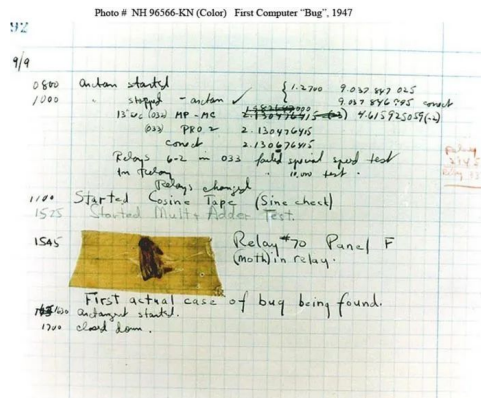 Photo # NH 96566-KN (Color) First Computer “Bug”, 1947
92
9/9
0800 antan started
1000 " stopped - antan ✓ { 1.2700 9.037 847 025
9.037 846 995 correct
13"uc (032) MP - MC 2.130476415 4.615925059(-2)
(033) PRO 2 2.130476415
correct 2.130676415
Relays 6-2 in 033 failed special speed test
in relay " 11,000 test.
Relays changed
1100 Started Cosine Tape (Sine check)
1525 Started Mult + Adder Test.
1545 Relay #70 Panel F
(moth) in relay.
First actual case of bug being found.
1630 antangent started.
1700 closed down.